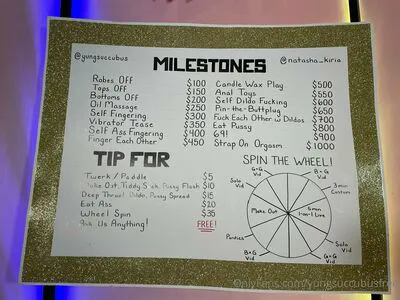 @yungsuccubus
MILESTONES
@natasha_kiria
Robes Off $100
Tops Off $150
Bottoms Off $200
Oil Massage $250
Self Fingering $300
Vibrator Tease $350
Self Ass Fingering $400
Finger Each Other $450
Candle Wax Play $500
Anal Toys $550
Self Dildo Fucking $600
Pin-the-Buttplug $650
Fuck Each Other w/ Dildos $700
Eat Pussy $800
69! $900
Strap On Orgasm $1000
TIP FOR
Twerk / Paddle $5
Make Out, Tiddy Suck, Pussy Flash $10
Deep Throat Dildo, Pussy Spread $15
Eat Ass $20
Wheel Spin $35
Ask Us Anything! FREE!
SPIN THE WHEEL!
G+G
Vid
Solo
Vid
3 min
Custom
Make Out
5 min
1-on-1 Live
Panties
Solo
Vid
B+G
Vid
G+G
Vid
onlyfans.com/yungsuccubusfree